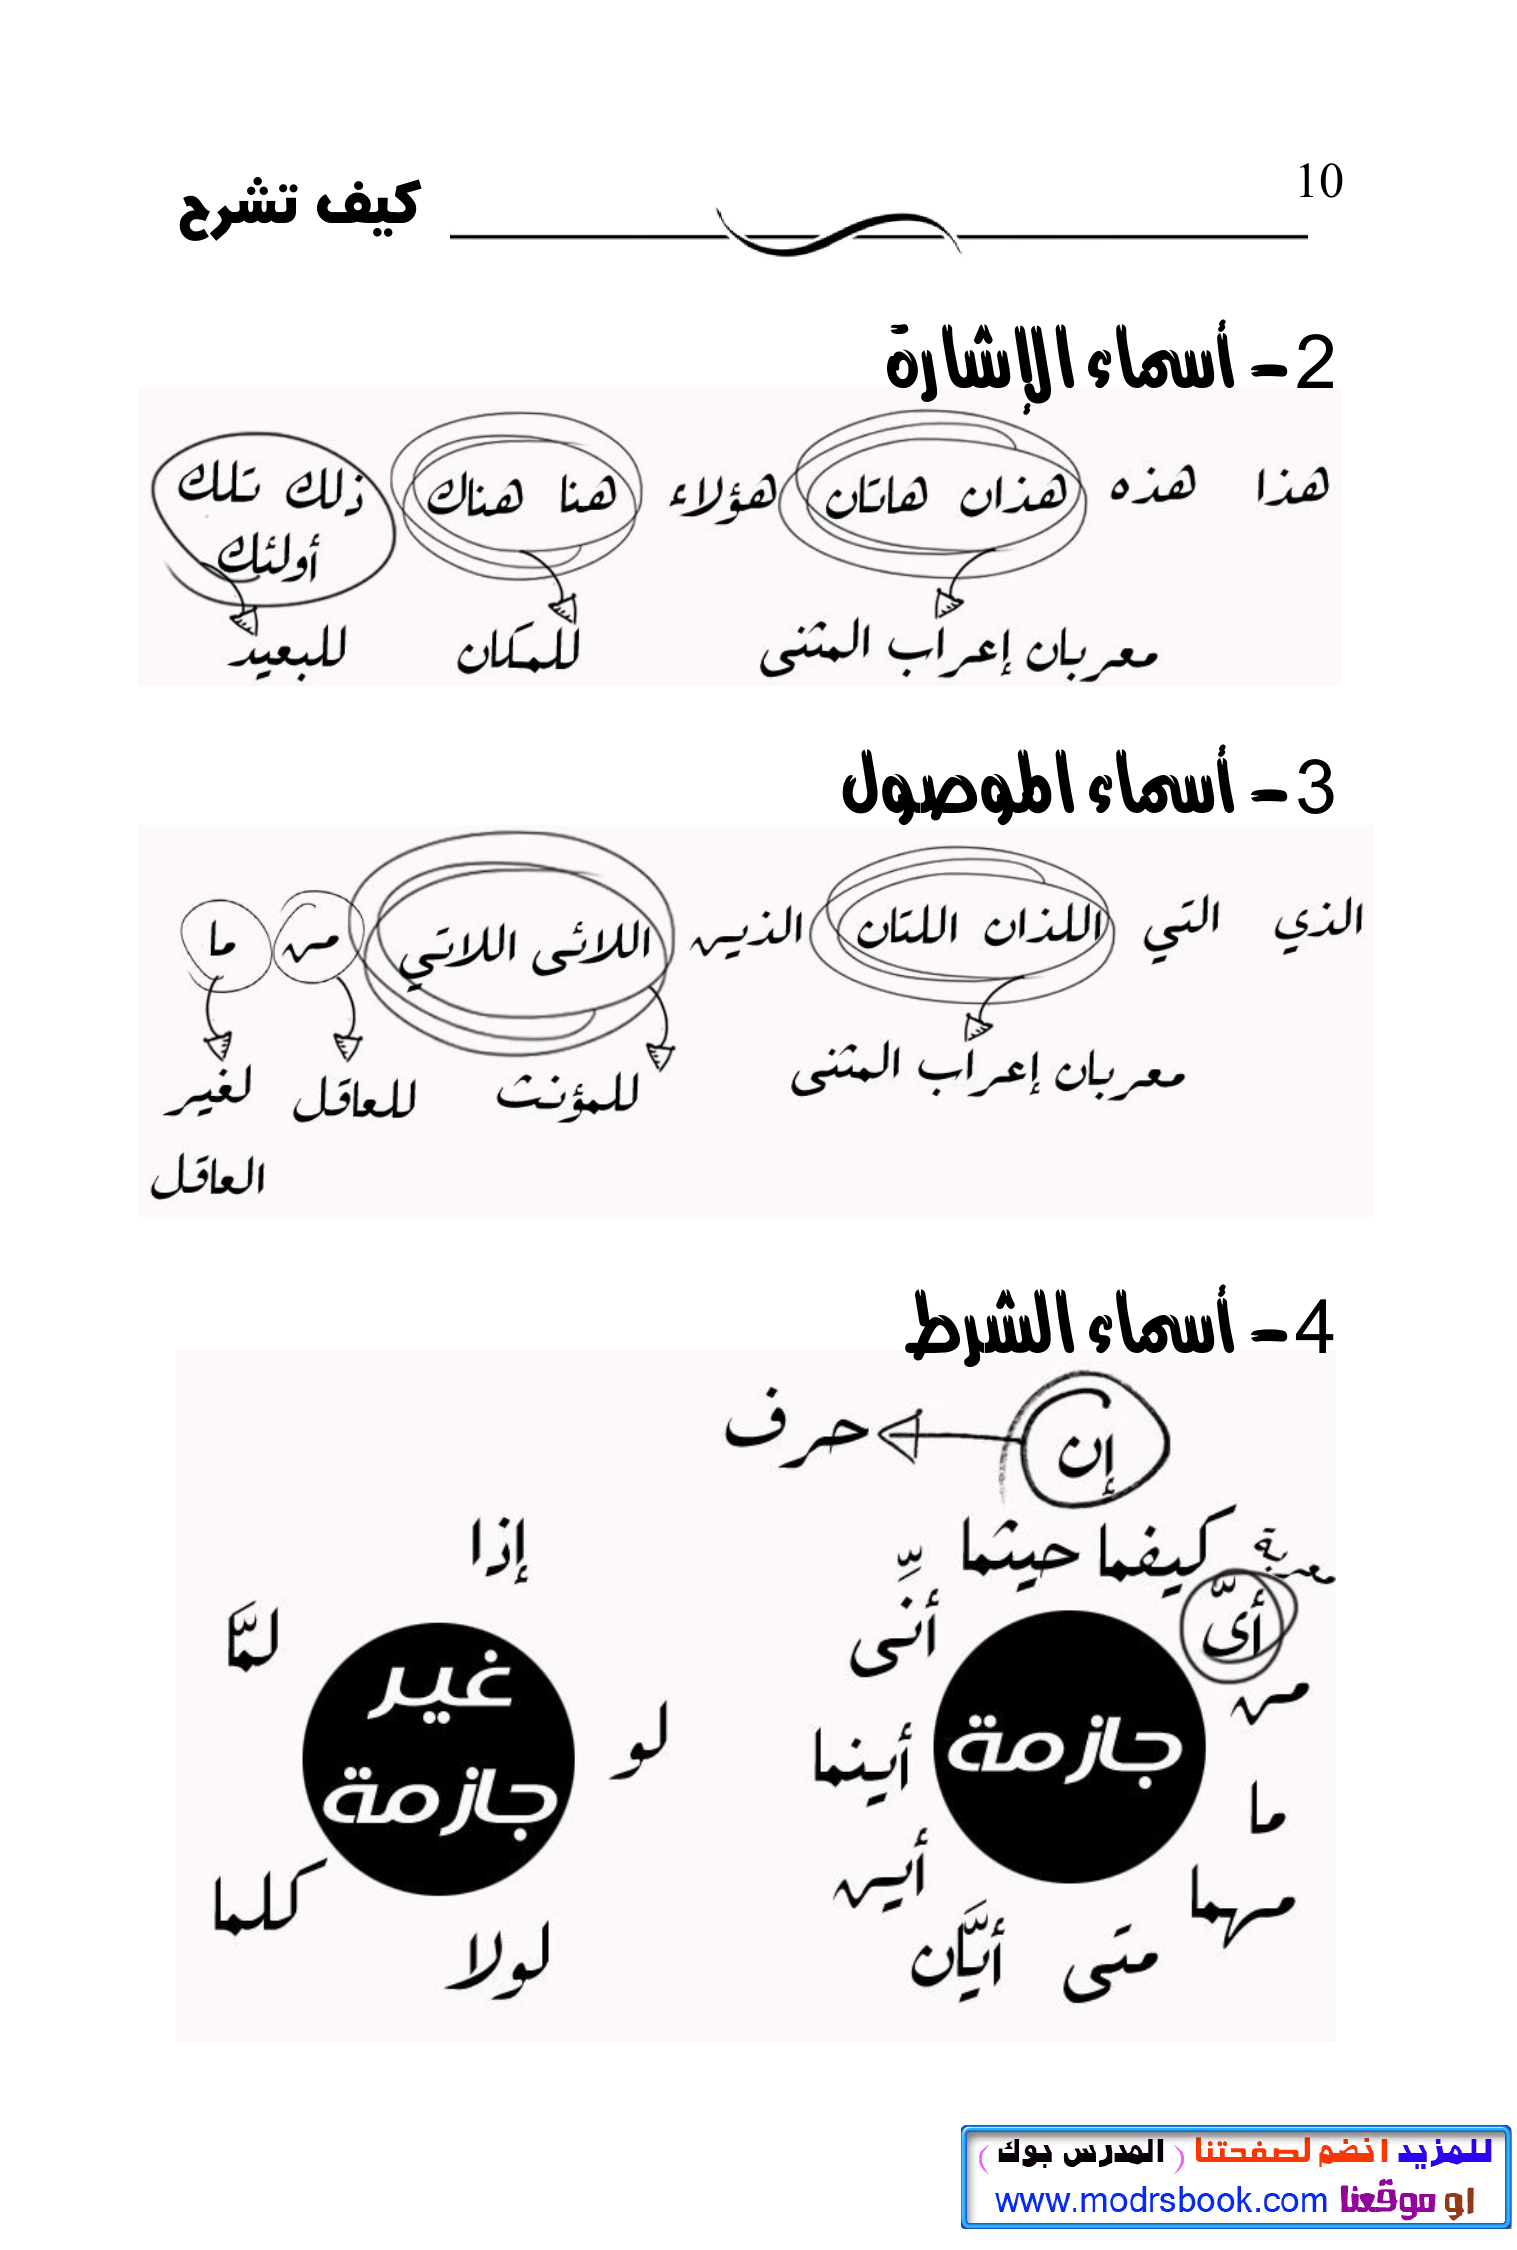 10
كيف تشرح
2 – أسماء الإشارة
هذا هذه هذان هاتان هؤلاء هنا هناك ذلك تلك
أولئك
معربان إعراب المثنى للمكان للبعيد
3 – أسماء الموصول
الذي التي اللذان اللتان الذين اللائى اللاتي من ما
معربان إعراب المثنى للمؤنث للعاقل لغير
العاقل
4 – أسماء الشرط
إن حرف
معربة
كيفما حيثما
أىّ
أنّى
من
جازمة
أينما
ما
أين
مهما
متى أيَّان
إذا
لمَّا
غير
جازمة
لو
كلما
لولا
للمزيد انضم لصفحتنا ( المدرس بوك )
او موقعنا www.modrsbook.com